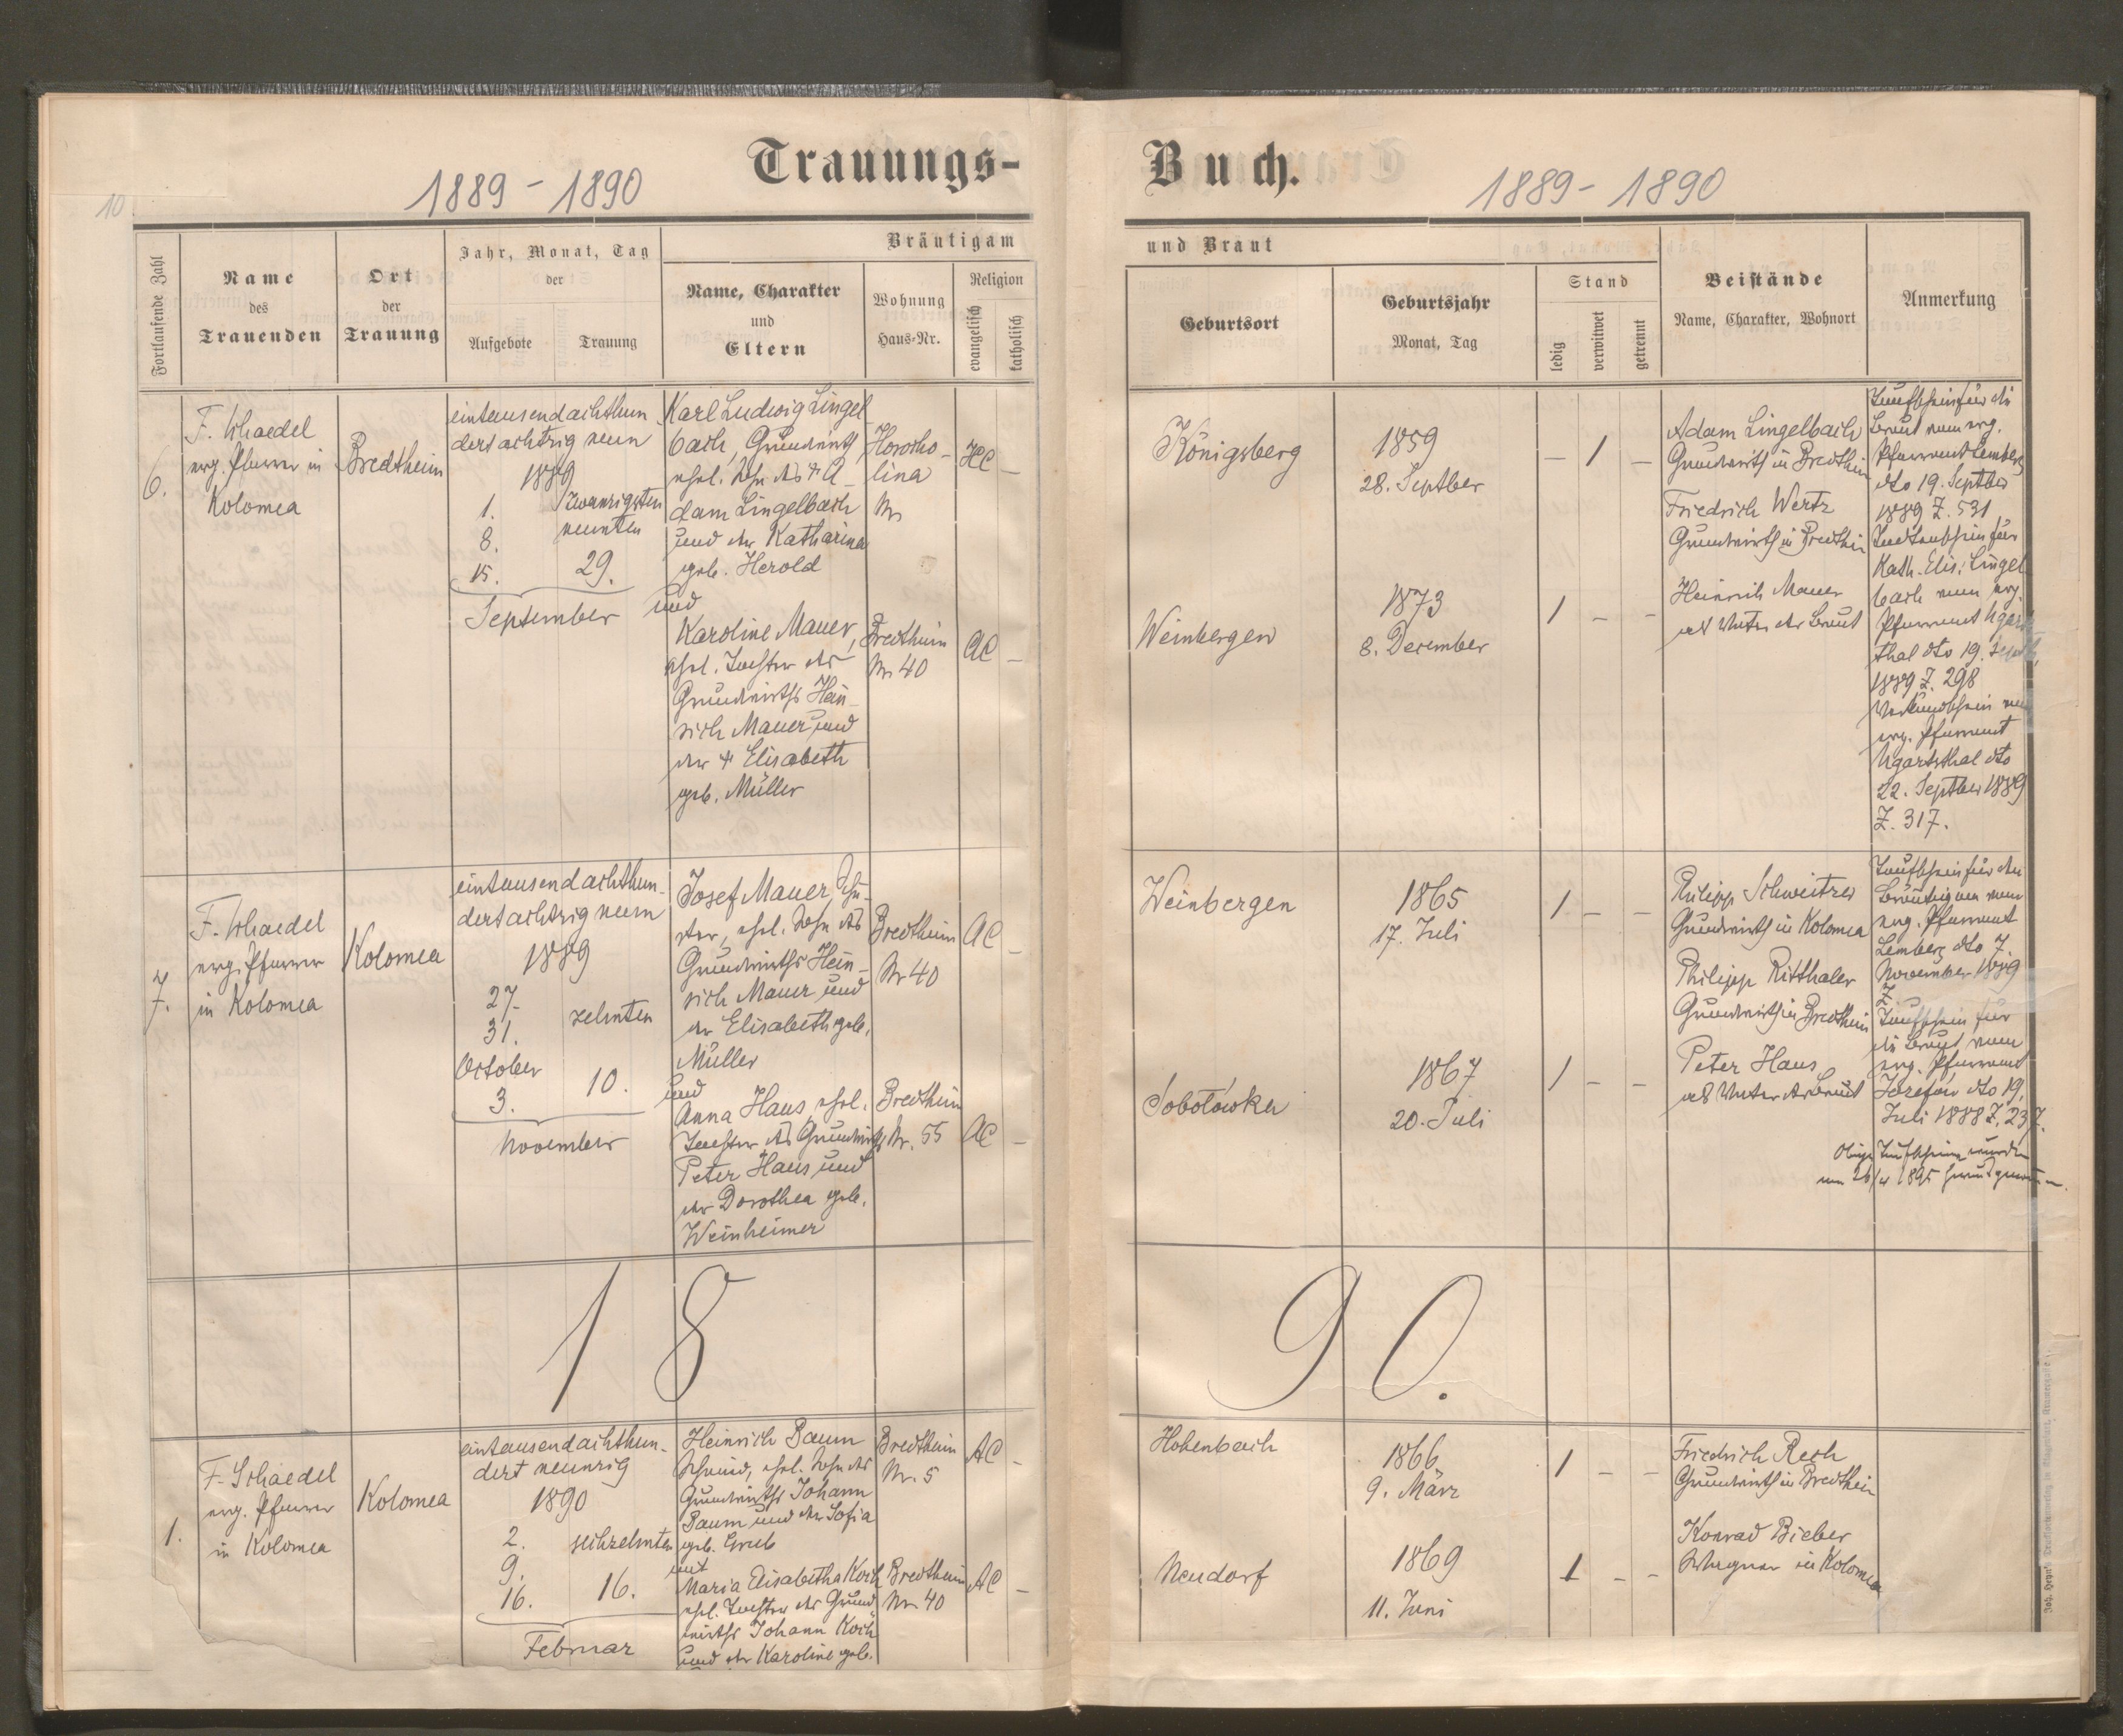 Trauungs-
Buch.
1889 - 1890
1889 - 1890
10
Fortlaufende Zahl
Name
des
Trauenden
Ort
der
Trauung
Jahr, Monat, Tag
der
Aufgebote
Trauung
Bräutigam
Name, Charakter
und
Eltern
Wohnung
Haus-Nr.
Religion
evangelisch
katholisch
und Braut
Geburtsort
Geburtsjahr
Monat, Tag
Stand
ledig
verwitwet
getrennt
Beistände
Name, Charakter, Wohnort
Anmerkung
6.
F. Schaedel
evg. Pfarrer in
Kolomea
Bredtheim
eintausendachthun-
dertachtzig neun
1889
1.
8.
15.
September
zwanzigsten
neunten
29.
Karl Ludwig Lingel
bach, Grundwirth
ehel. Sohn des † A-
dam Lingelbach
und der Katharina
geb. Herold
und
Karoline Mauer,
ehel. Tochter des
Grundwirths Hein-
rich Mauer und
der † Elisabeth
geb. Müller
Horocho-
lina
Nr
HC
–
Bredtheim
Nr 40
AC
–
Königsberg
1859
28. Septber
– 1 –
Weinbergen
1873
8. December
1 – –
Adam Lingelbach
Grundwirth in Bredtheim
Friedrich Wertz
Grundwirth in Bredtheim
Heinrich Mauer
als Vater der Braut
Taufschein für die
Braut vom evg.
Pfarramt Lemberg
dto 19. Septber
1889 Z. 531
Todtenschein für
Kath. Elis. Lingel
bach vom evg.
Pfarramt Ugarts
thal dto 19. Septb.
1889 Z. 298
Verkündschein vom
evg. Pfarramt
Ugartsthal dto
22. Septber 1889
Z. 317.
7.
F. Schaedel
evg. Pfarrer
in Kolomea
Kolomea
eintausendachthun-
dertachtzig neun
1889
27.
31.
October
3.
November
zehnten
10.
Josef Mauer,
ehel. Sohn des
Grundwirths Hein-
rich Mauer und
der Elisabeth geb.
Müller
und
Anna Haus, ehel.
Tochter des Grundwirths
Peter Haus und
der Dorothea geb.
Weinheimer
Bredtheim
Nr 40
AC
–
Bredtheim
Nr. 55
AC
–
Weinbergen
1865
17. Juli
1 – –
Sobotówka
1867
20. Juli
1 – –
Philipp Schweitzer
Grundwirth in Kolomea
Philipp Ritthaler
Grundwirth in Bredtheim
Peter Haus
als Vater der Braut
Taufschein für den
Bräutigam vom
evg. Pfarramt
Lemberg dto 7.
November 1889
Z.
Taufschein für
die Braut vom
evg. Pfarramt
Józefów dto 19.
Juli 1888 Z. 237.
Obige Taufscheine wurden
am 26/4 1895
1 8
9 0.
1.
F. Schaedel
evg. Pfarrer
in Kolomea
Kolomea
eintausendachthun-
dert neunzig
1890
2.
9.
16.
Februar
sechzehnten
16.
Heinrich Baum
Schmied, ehel. Sohn des
Grundwirths Johann
Baum und der Sofia
geb. Grub
mit
Maria Elisabetha Koch
ehel. Tochter des Grund-
wirths Johann Koch
und der Karoline geb.
Bredtheim
Nr. 5
AC
–
Bredtheim
Nr. 40
AC
–
Hohenbach
1866
9. März
1 – –
Neudorf
1869
11. Juni
1 – –
Friedrich Rech
Grundwirth in Bredtheim
Konrad Bieber
Wagner in Kolomea